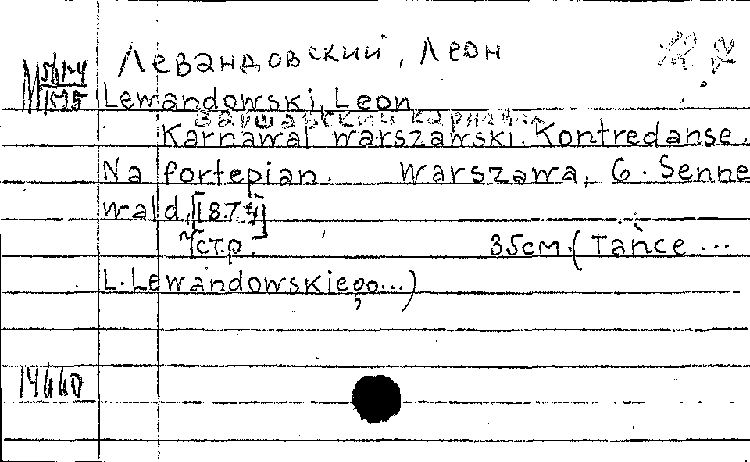 Левандовский, Леон
Lewandowski, Leon
Варшавский карнавал
Karnawał warszawski. Kontredanse.
Na fortepian. Warszawa, G. Senne
wald, [1874]
7 стр. 35 см. (Tańce ...
L. Lewandowskiego...)
14440